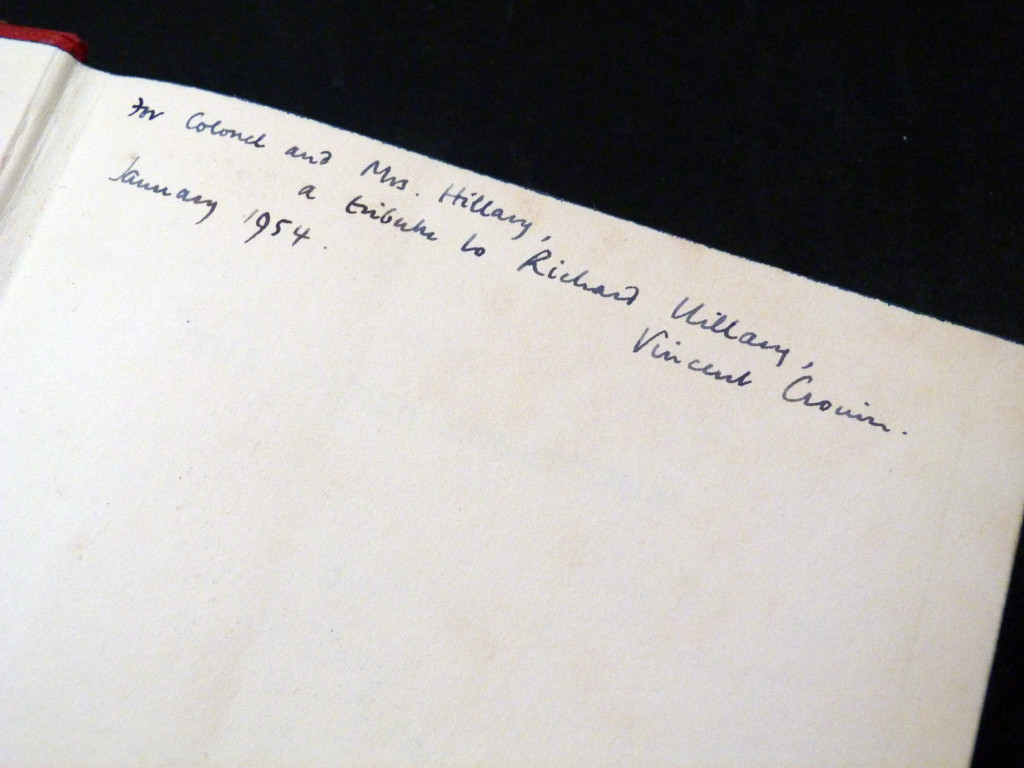 For Colonel and Mrs. Hillary,
a tribute to Richard Hillary,
Vincent Cronin.
January 1954.